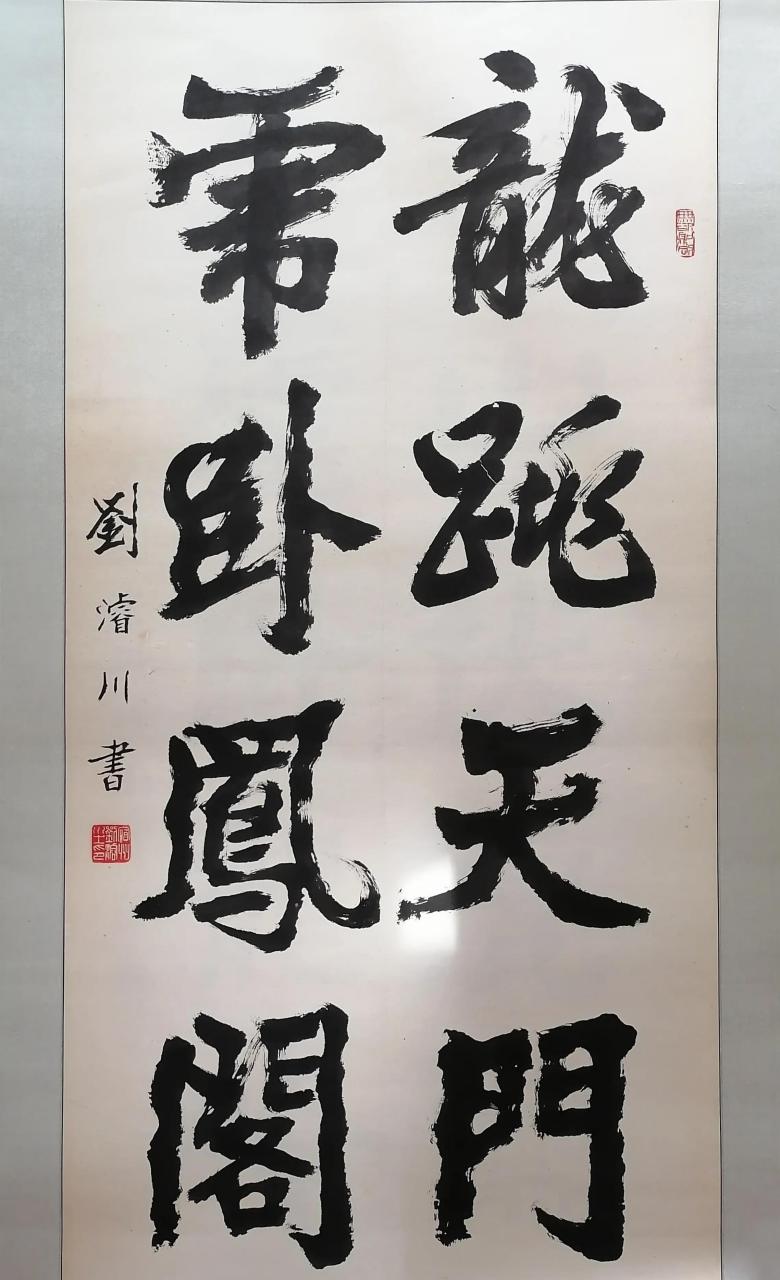 龍跳天門
虎卧鳳閣
劉濬川書